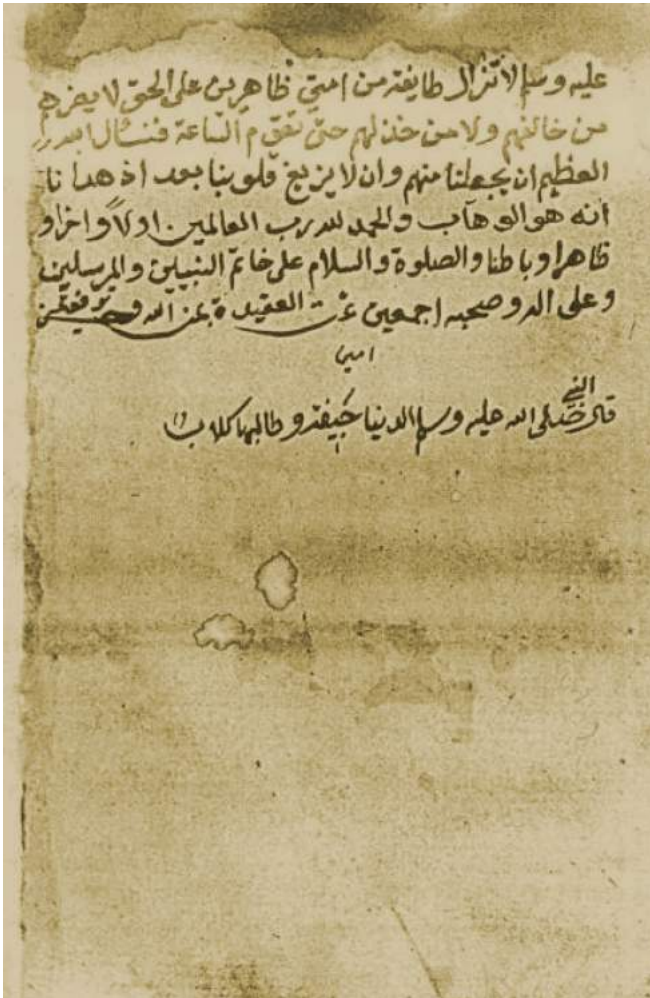 عليه وسلم لا تزال طايفة من امتي ظاهرين على الحق لا يضرهم
من خالفهم ولا من خذلهم حتى تقوم الساعة فنسال الله
العظيم ان يجعلنا منهم وان لا يزيغ قلوبنا بعد اذ هدانا
انه هو الوهاب والحمد لله رب العالمين اولاً واخرا و
ظاهرا وباطنا والصلوة والسلام على خاتم النبيين والمرسلين
وعلى اله وصحبه اجمعين تمت العقيدة بمن الله و
امين
النبي
قال صلى الله عليه وسلم الدنيا جيفة وطالبها كلاب